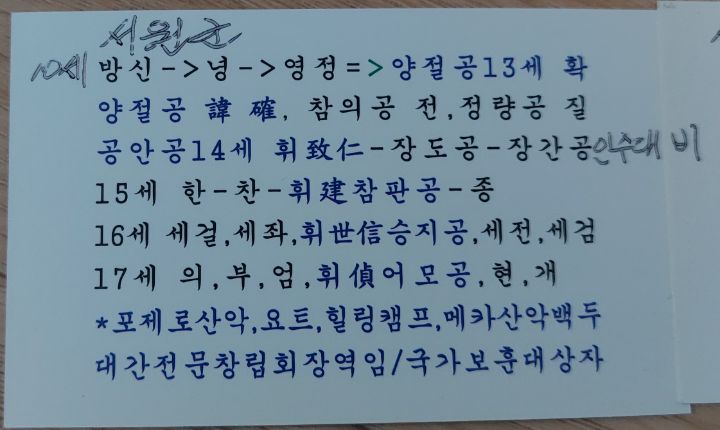 서원군
10세 방신->녕->영정=>양절공13세 확
양절공 諱 確, 참의공 전,정량공 질
공안공14세 휘致仁-장도공-장간공인수대비
15세 한-찬-휘建참판공-종
16세 세걸,세좌,휘世信승지공,세전,세검
17세 의,부,엄,휘偵어모공,현,개
*포제로산악,요트,힐링캠프,메카산악백두
대간전문창립회장역임/국가보훈대상자